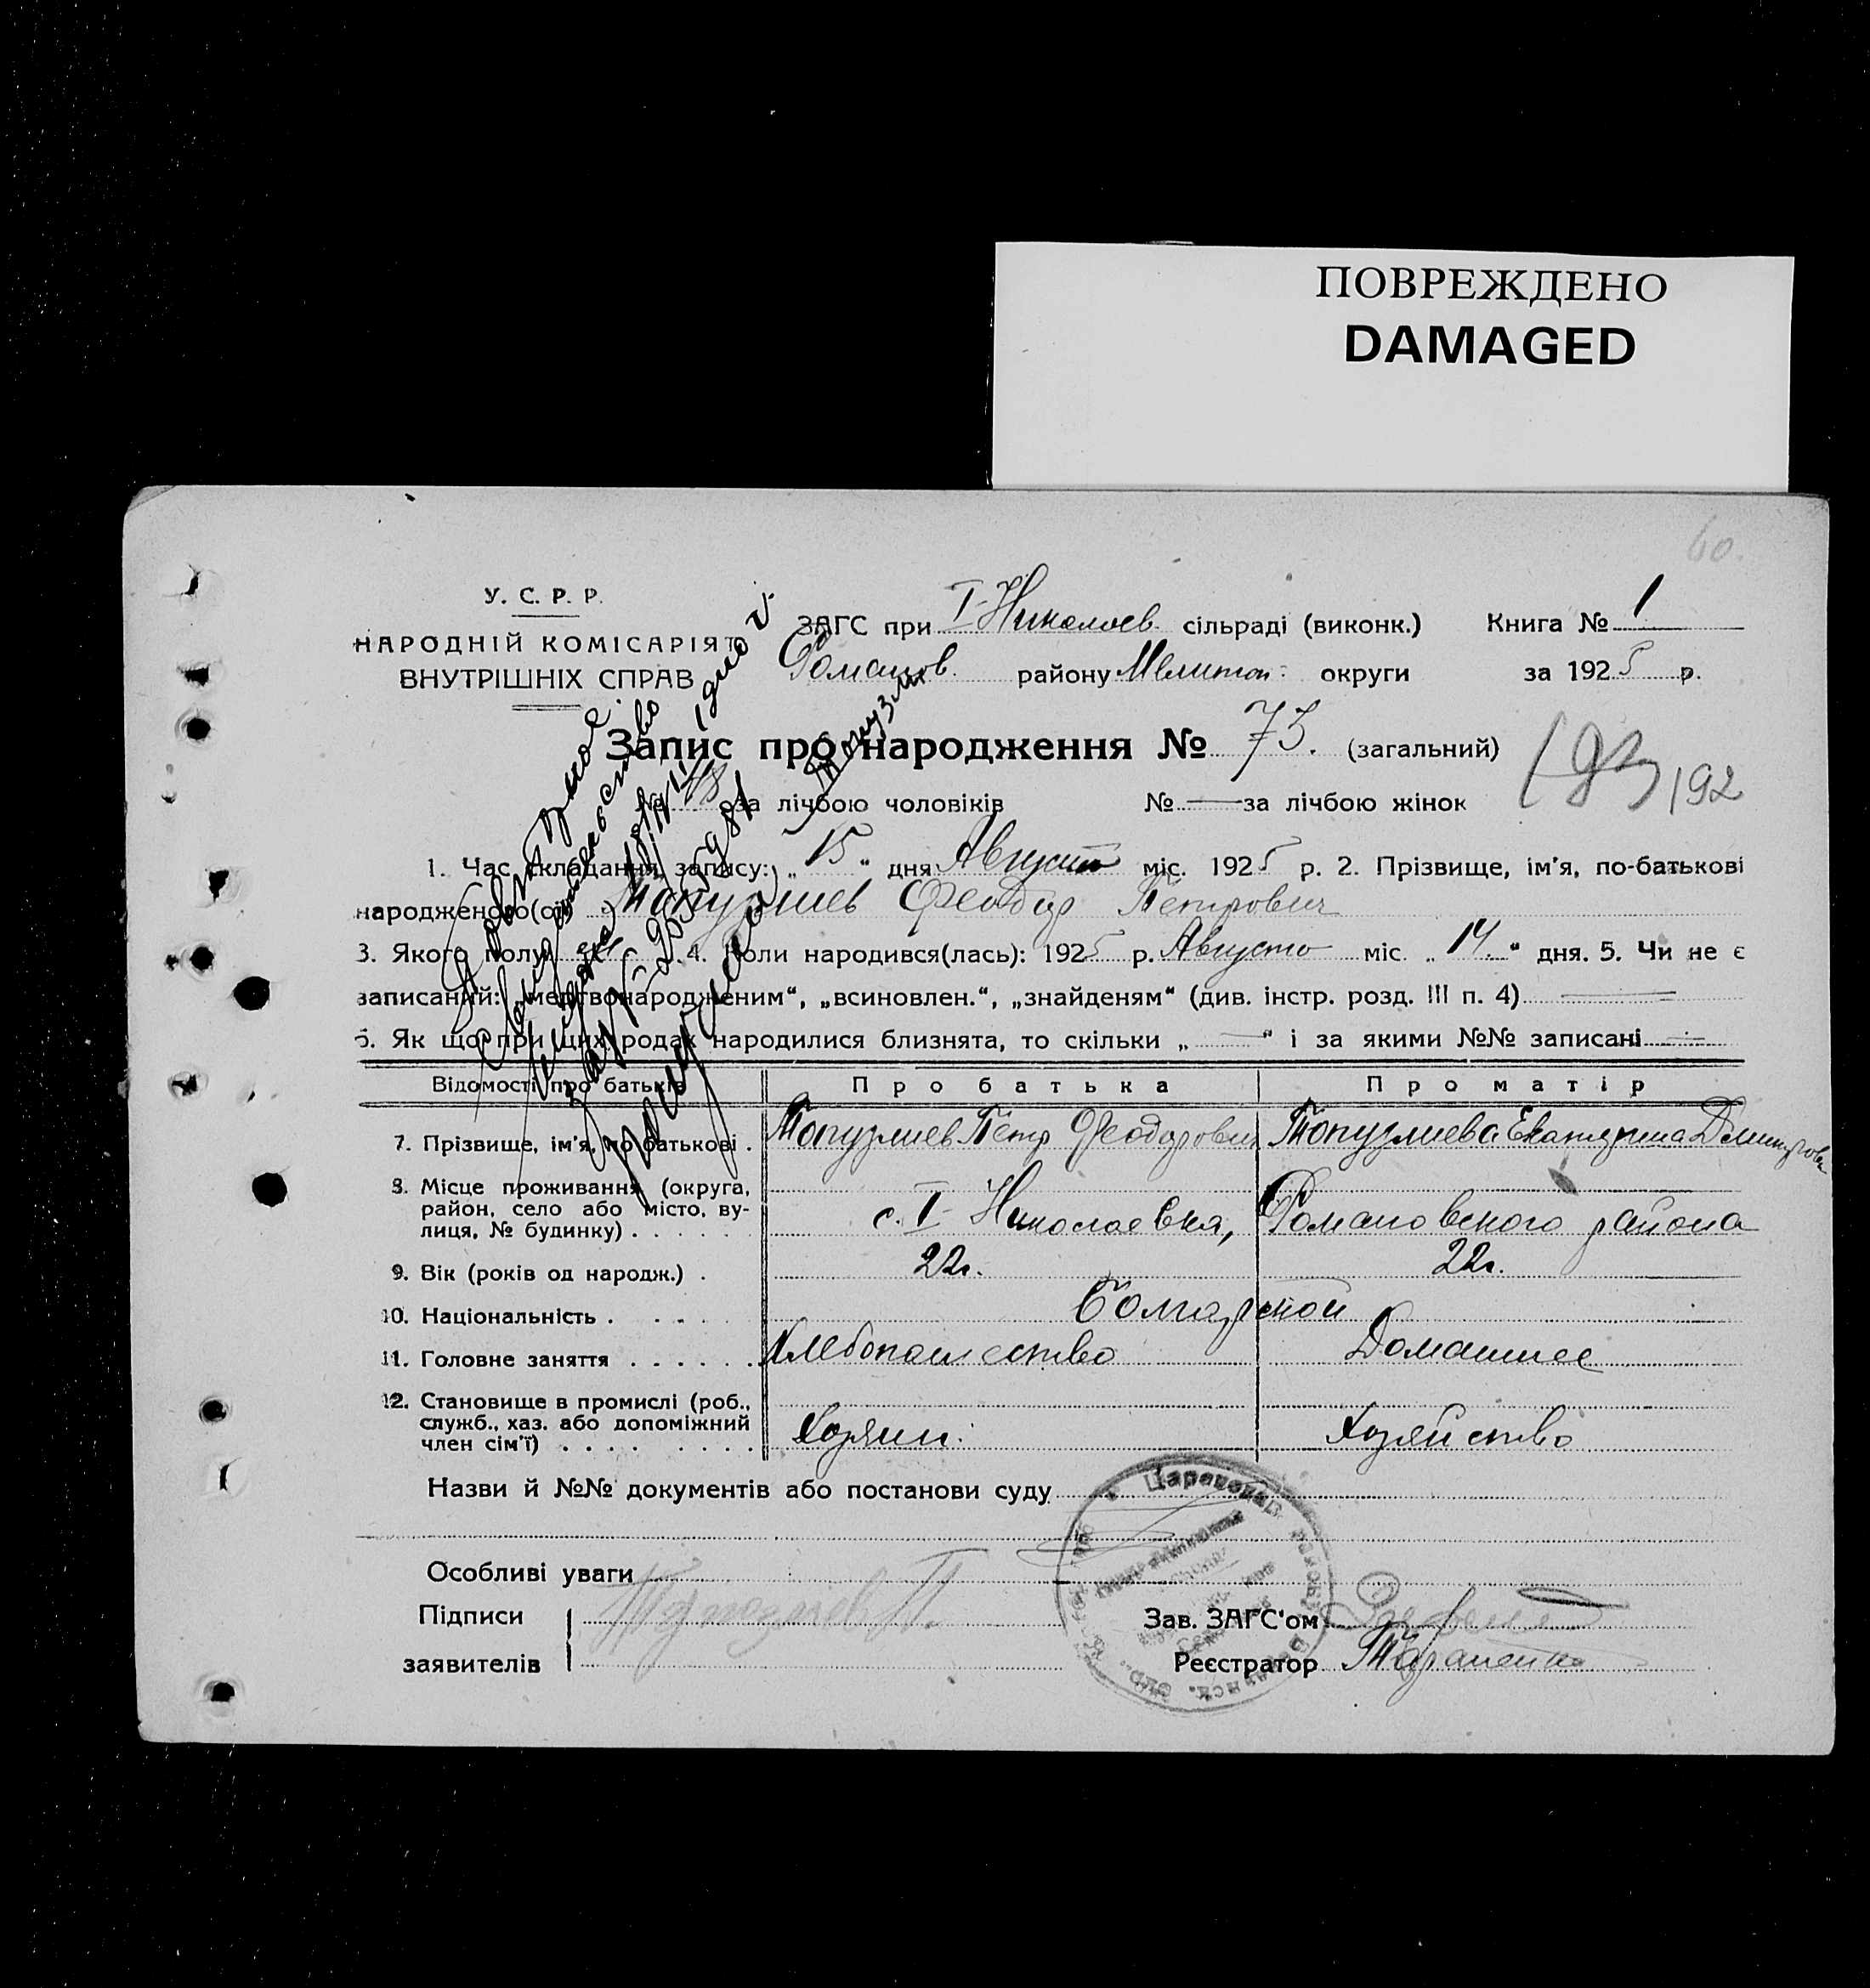 ПОВРЕЖДЕНО
DAMAGED
60.
У. С. Р. Р.
НАРОДНІЙ КОМІСАРІЯТ
ВНУТРІШНІХ СПРАВ
ЗАГС при I-Николаев. сільраді (виконк.) Книга № 1
Романов. району Мелитоп. округи за 1925 р.
Запис про народження № 73. (загальний)
192
№ 48 за лічбою чоловіків № — за лічбою жінок
1. Час складання запису: „15“ дня Августа міс. 1925 р. 2. Прізвище, ім'я, по-батькові
народженого(ої) Топузлиев Феодор Петрович
3. Якого полу 4. Коли народився(лась): 1925 р. Августа міс. „14.“ дня. 5. Чи не є
записаний: „мертвонародженим“, „всиновлен.“, „знайденям“ (див. інстр. розд. III п. 4) —
6. Як що при цих родах народилися близнята, то скільки „—“ і за якими №№ записані —
Відомості про батьків Про батька Про матір
7. Прізвище, ім'я, по батькові . Топузлиев Петр Феодорович Топузлиева Екатерина Димитровн
8. Місце проживання (округа,
район, село або місто, ву-
лиця, № будинку) . . . . . . с. I-Николаевка, Романовского района
9. Вік (років од народж.) . 22г. 22г.
10. Національність . . . . . Болгарской
11. Головне заняття . . . . . . Хлебопашество Домашнее
12. Становище в промислі (роб.,
служб., хаз. або допоміжний
член сім'ї) . . . . . . . . Хозяин. Хозяйство
Назви й №№ документів або постанови суду
Особливі уваги
Підписи
заявителів
Зав. ЗАГС'ом
Реєстратор Тараненко